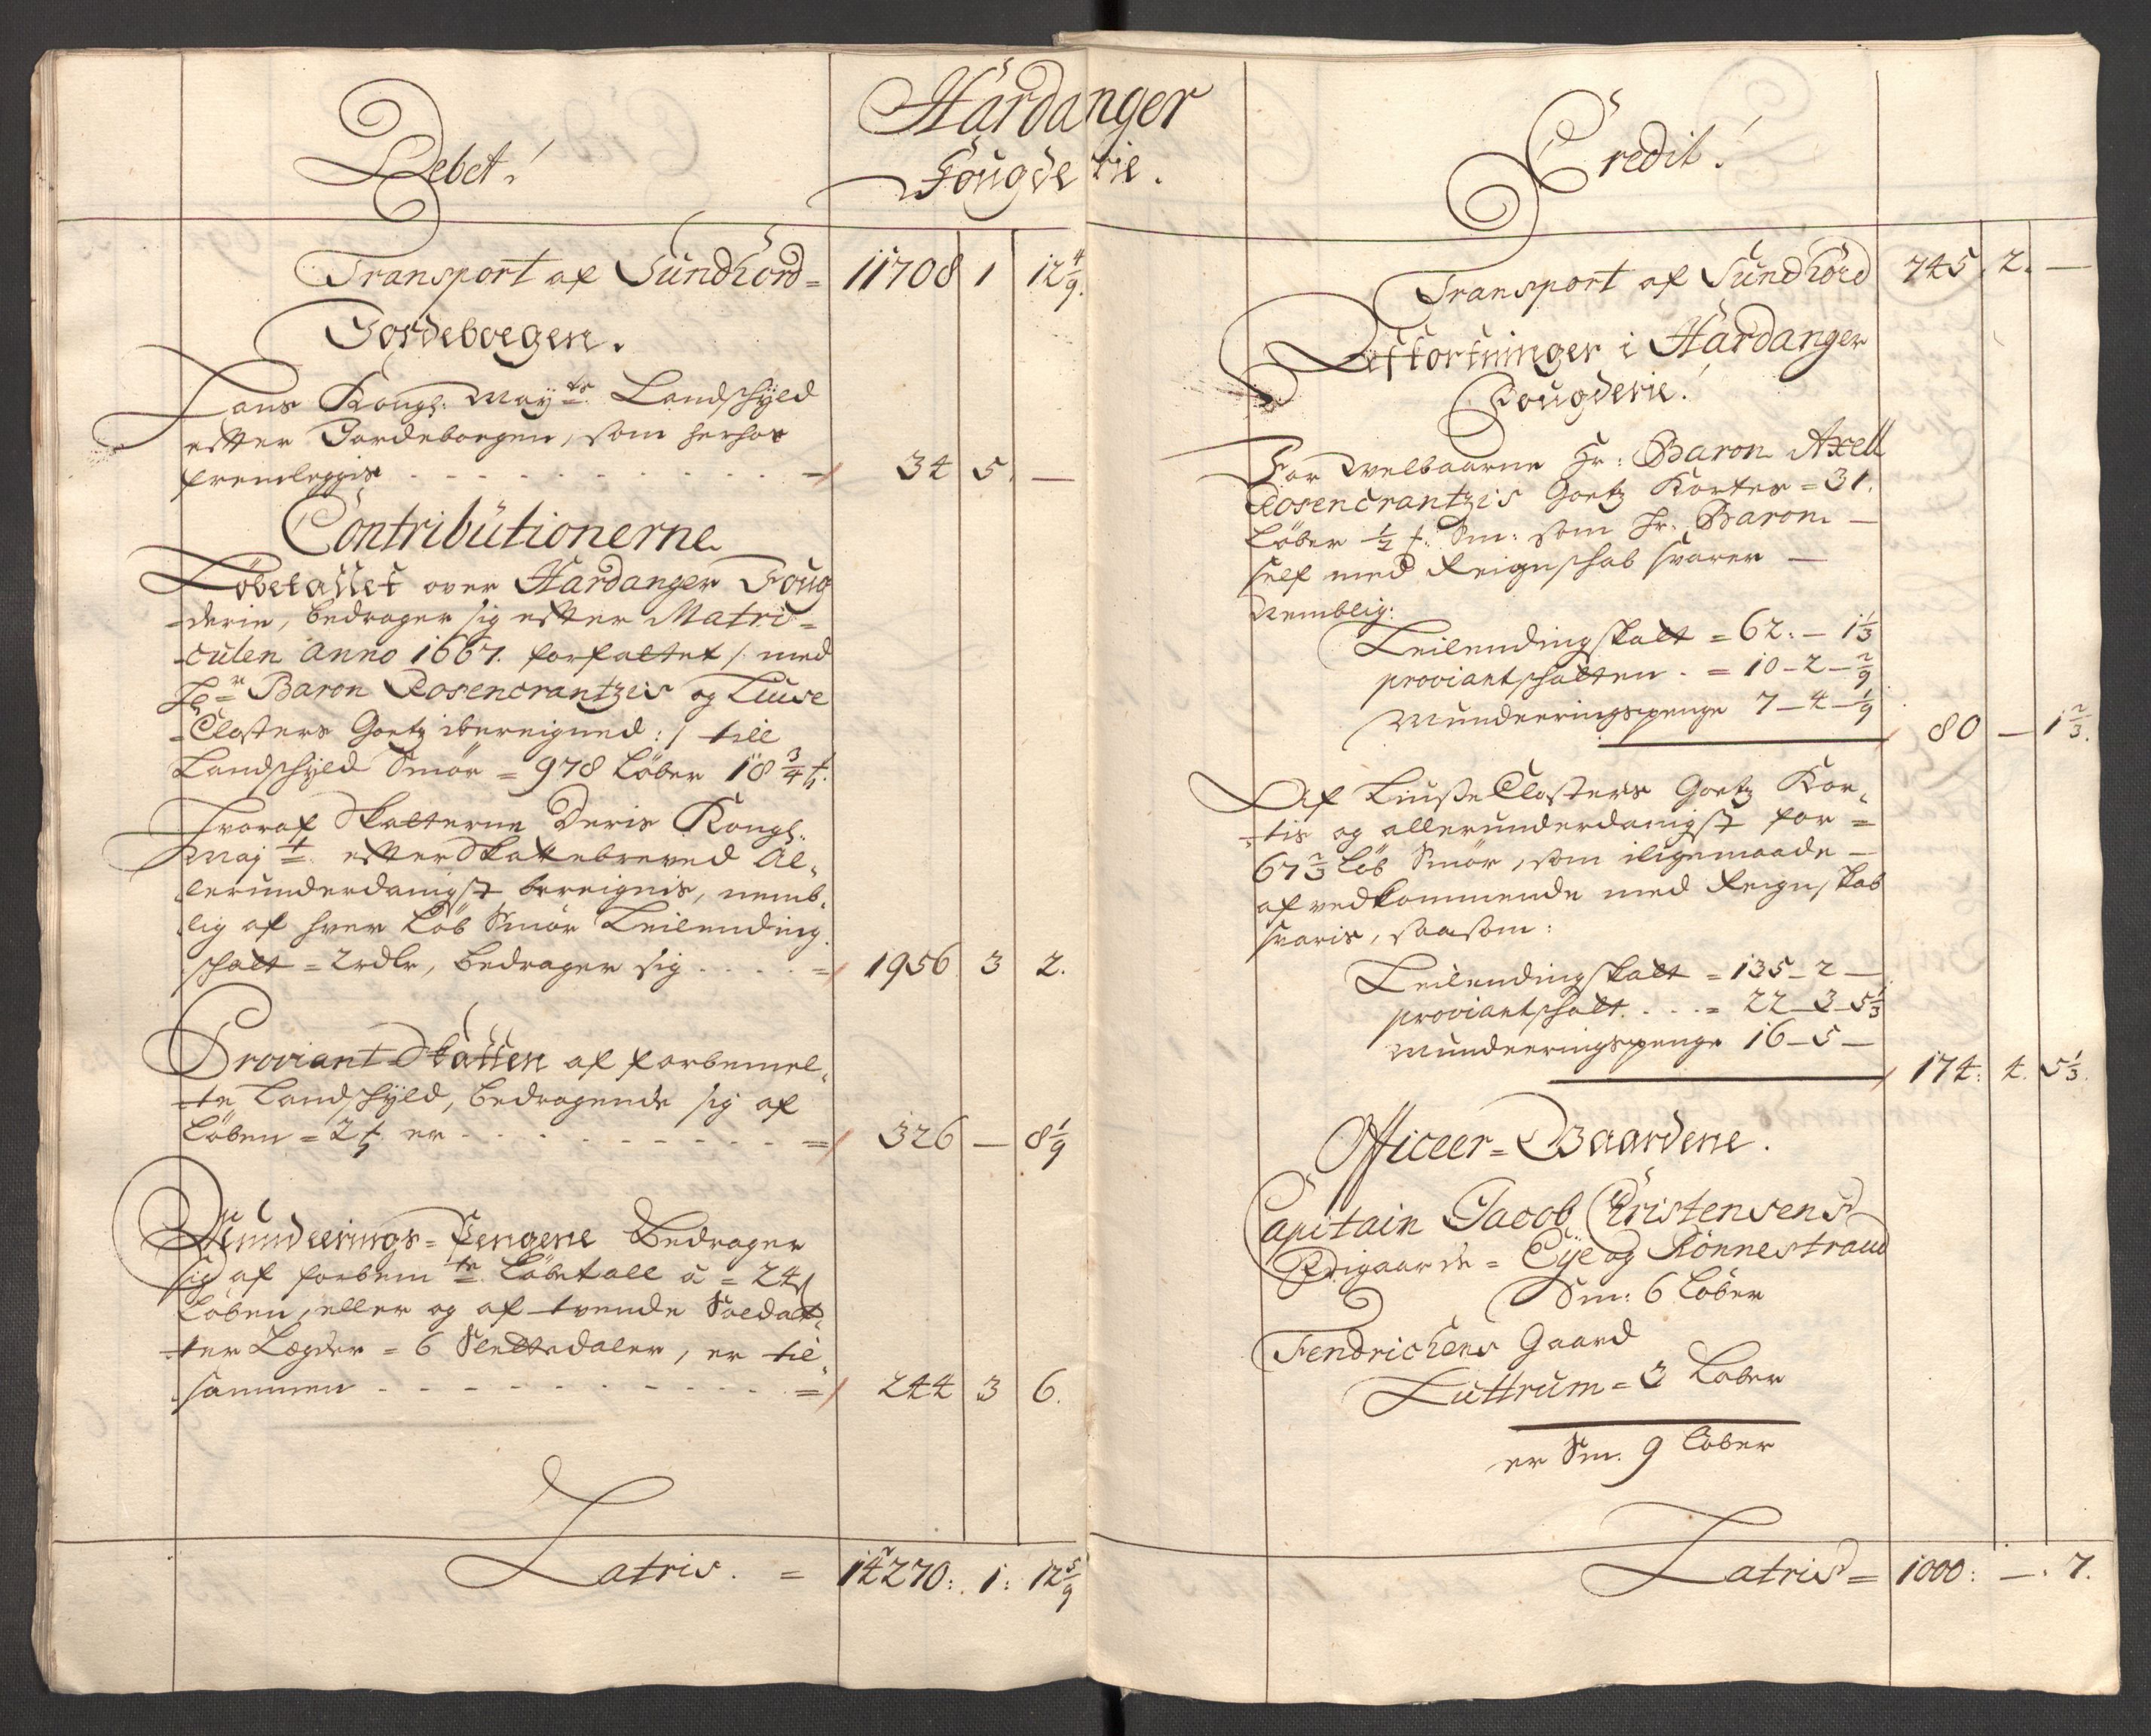 Hardanger
Fougderie.
Debet!
Transport af Sundhord= 11708 1 12 4/9.
Jordebogen.
Hans Kongl: Mayts. Landschyld
efter Jordebogen, som herhos
fremleggis - - - - 34 5. —
Contributionerne
Løbetallet over Hardanger Foug
=derie, bedrager sig efter Matri=
=culen Anno 1667. forfattet /: med
Hr Baron Rosencrantzis og Liuse
Closters Goetz ibereigned :/ till
Landschyld Smør = 978 Løber 18 3/4 ℔.
Hvoraf Skatterne Deris Kongl:
Mayt. efter Skattebreved Al,
lerunderdanigst bereignis, nemb,
lig af hver Løb Smør Leilending
schatt = 2rdlr, bedrager sig . . . . = 1956 3 2.
Proviant Skatten af forbemel,
=te Landschyld, bedragende sig af
Løben = 2 ℔ er - - - - = 326 — 8 1/9
Munderings=Pengene Bedrager
sig af forbemte. Løbetall à = 24 s
Løben, eller og af tvende Soldat,
ter Legder = 6 Slettedaler, er til,
sammen - - - - = 244 3 6.
Latris. = 14270: 1: 12 5/9
Credit!
Transport af Sundhord 745. 2. —
Affkortninger i Hardanger
Fougderie!
For Welbaarne Hr: Baron Axell
Rosencrantzis Goetz Kortes = 31.
Løber 1/2 ℔: Sm: som Hr. Baron —
self med Reignschab svarer —
Nemblig:
Leilendingskatt = 62: — 1 1/3
proviantschatten . = 10 - 2 - 2/9
Munderingspenge 7 - 4 - 1/9 80 — 1 2/3.
Af Liuse Closters Goetz Kor,
=tis og allerunderdanigst for =
67 2/3 Løb Smør, som iligemaade —
af vedkommende med Reignskab
svaris, saasom:
Leilendingskatt = 135 - 2 —
proviantschatt. . . . = 22 - 3 - 5 1/3
Munderingspenge 16 - 5 — 174: 4. 5 1/3.
Officeer=Gaardene.
Capitain Jacob Christensens
Frigaarde = Eye og Rönnestrand
Sm: 6 Løber
Fendrichens Gaard
Luttrum = 3 Løber
er Sm. 9 Løber
Latris = 1000: —. 7.